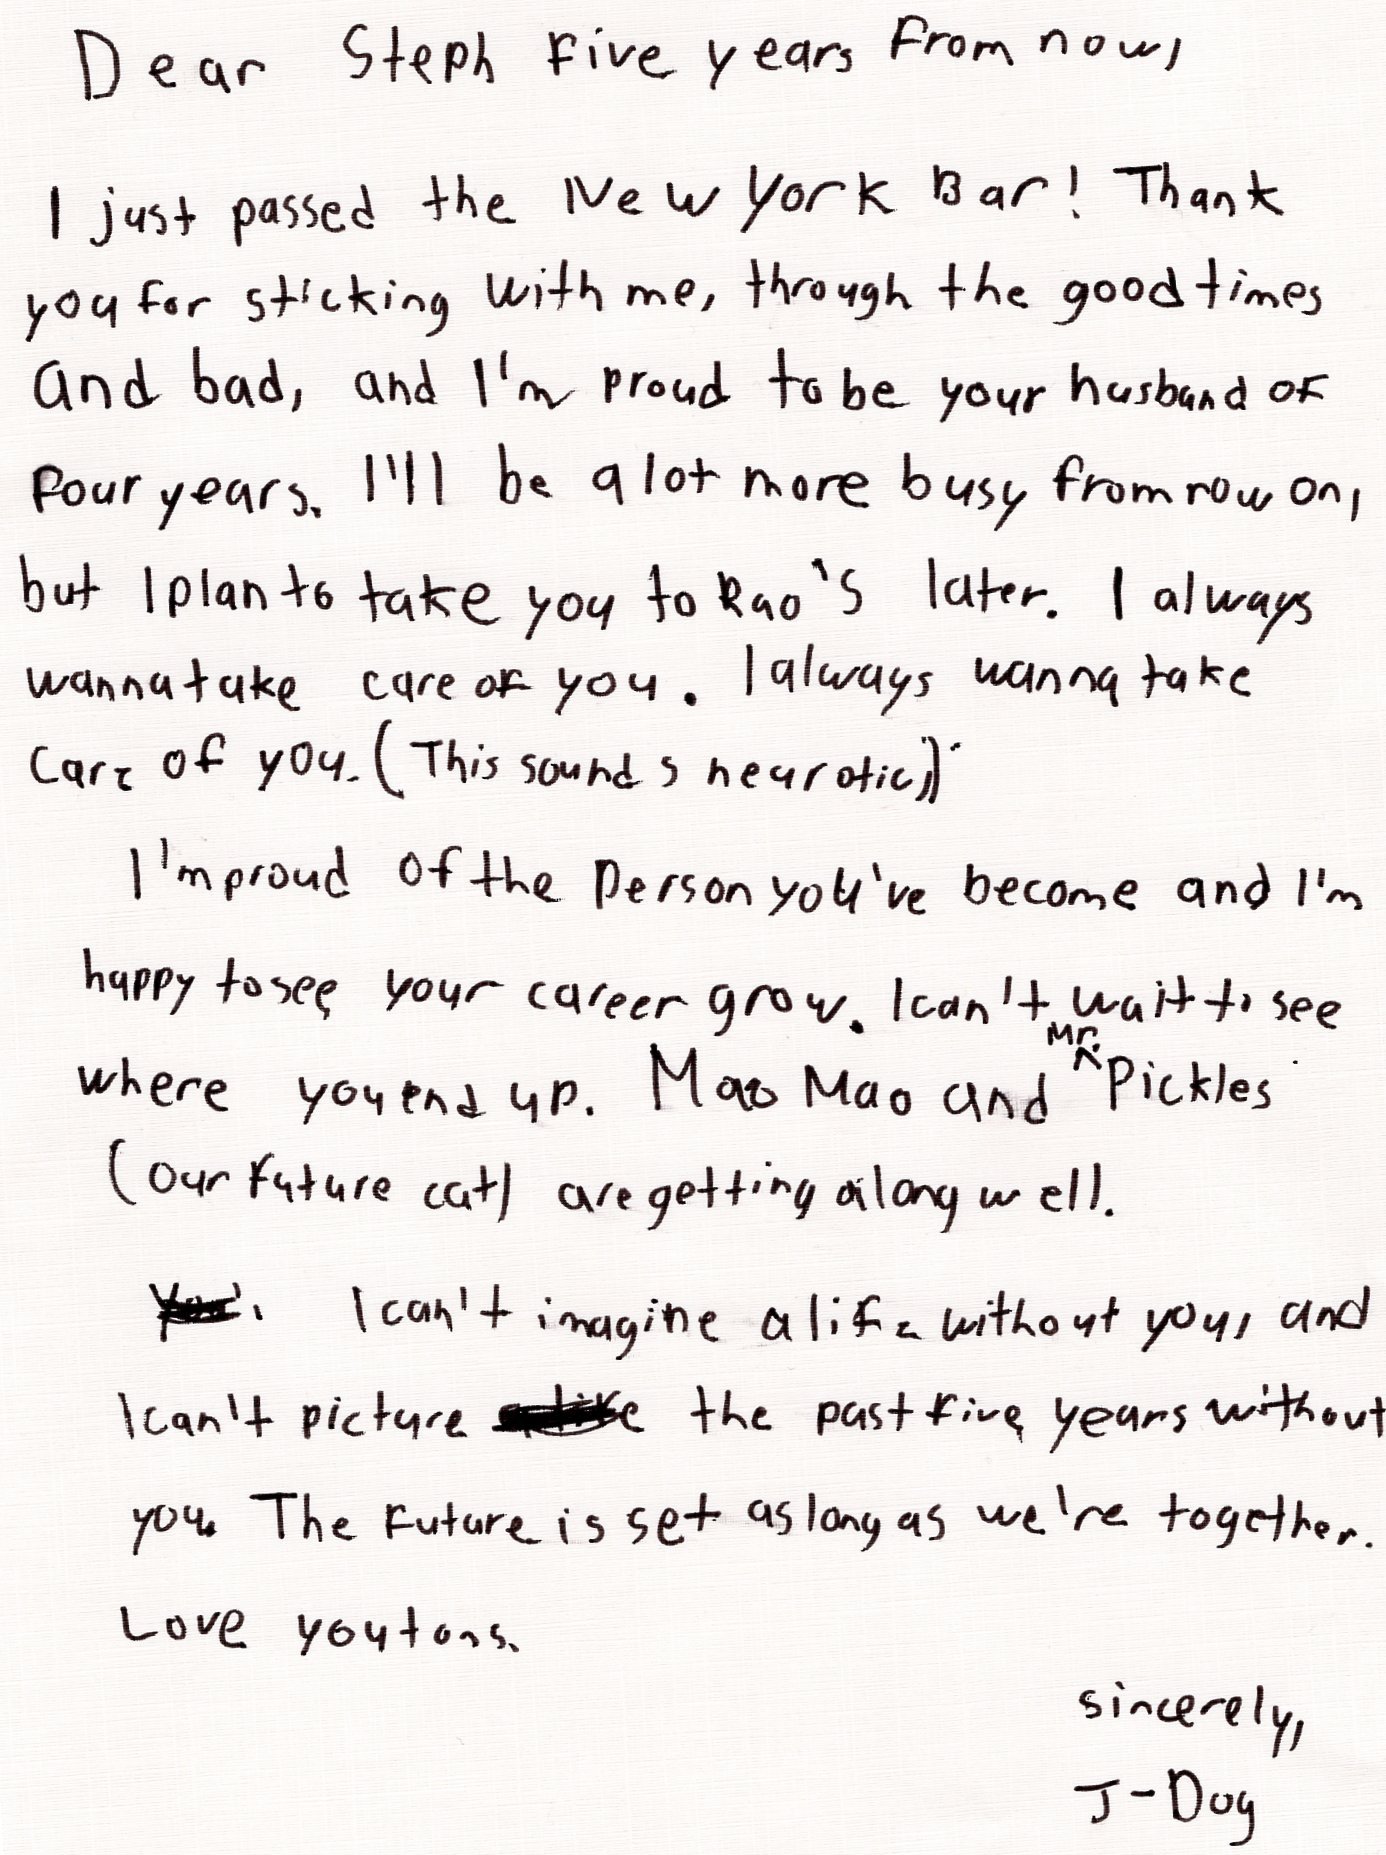 Dear Steph five years from now,
I just passed the New York Bar! Thank
you for sticking with me, through the good times
and bad, and I'm proud to be your husband of
four years. I'll be a lot more busy from now on,
but I plan to take you to Rao's later. I always
wanna take care of you. I always wanna take
care of you. (This sounds neurotic.)
I'm proud of the person you've become and I'm
happy to see your career grow. I can't wait to see
where you end up. Mao Mao and Mr. Pickles
(our future cat) are getting along well.
I can't imagine a life without you, and
I can't picture the past five years without
you. The future is set as long as we're together.
Love you tons.
sincerely,
J-Dog